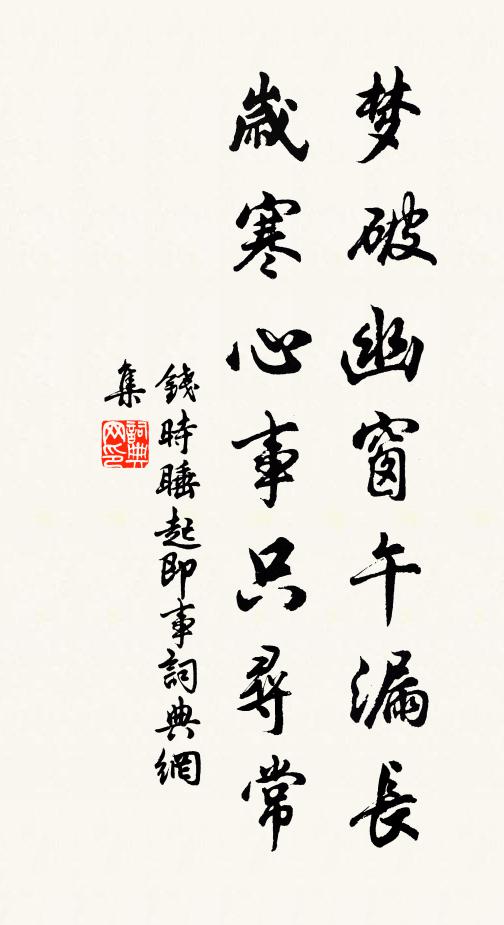 梦破幽窗午漏長
歲寒心事只尋常
錢時睡起即事詞典網
集
詞典网印